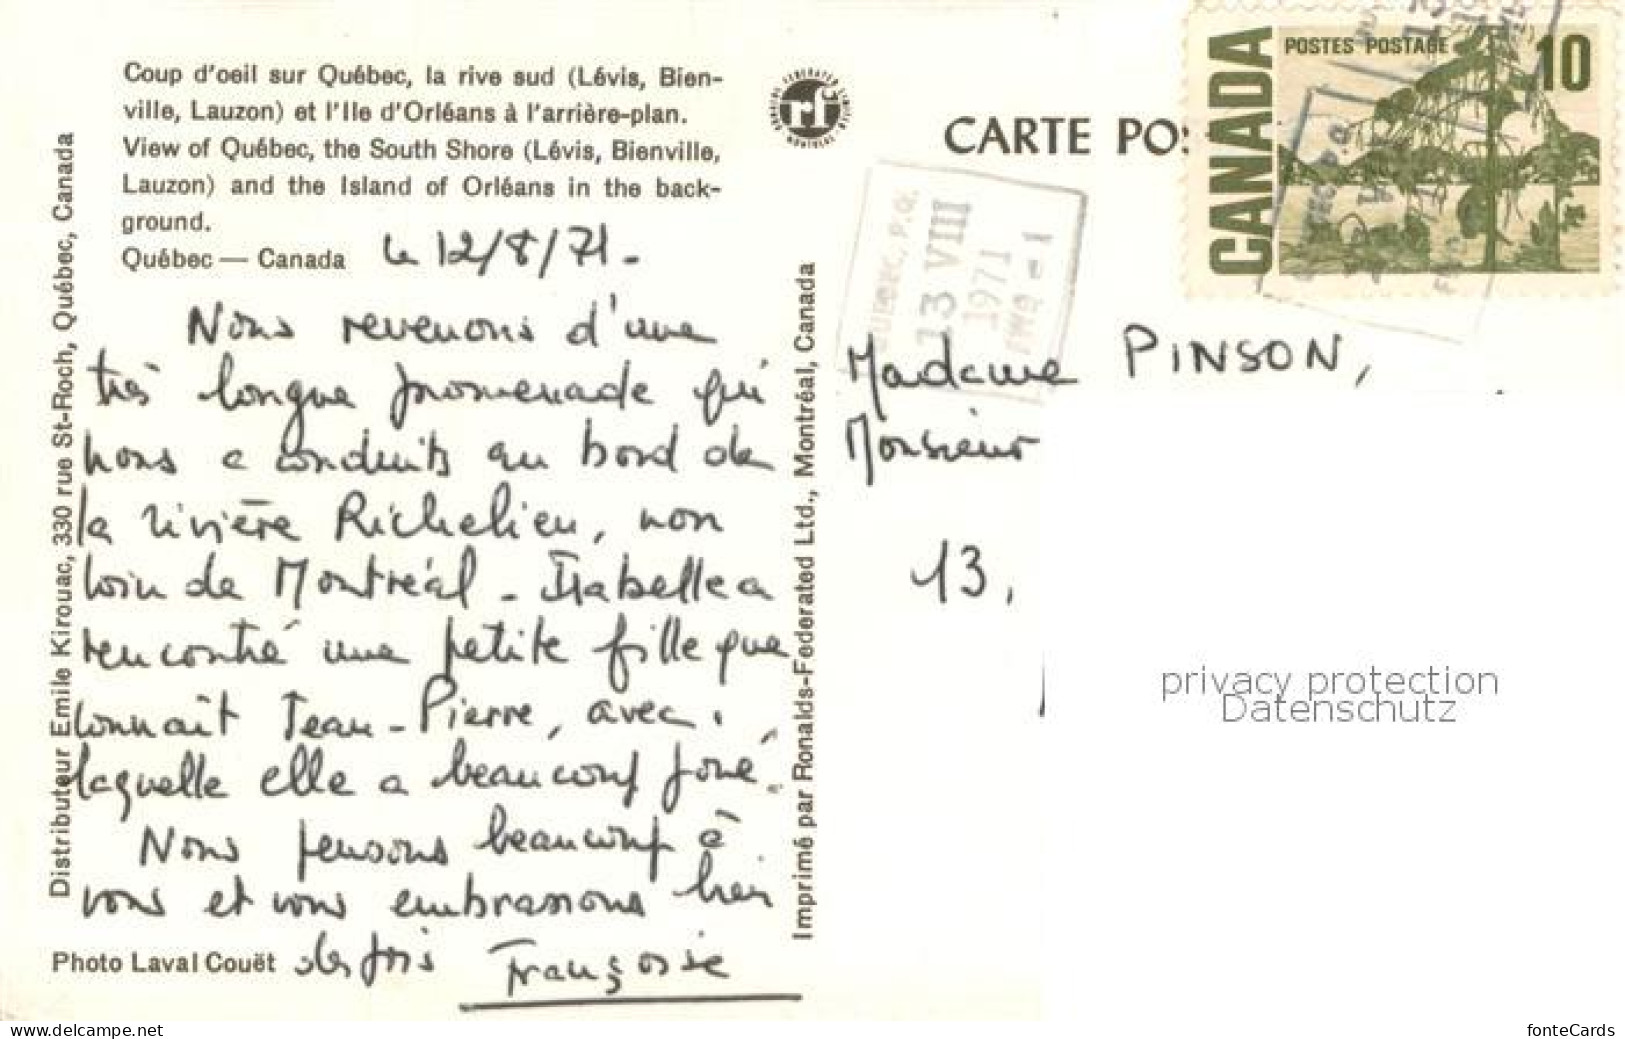 Coup d'oeil sur Québec, la rive sud (Lévis, Bien-
ville, Lauzon) et l'Ile d'Orléans à l'arrière-plan.
View of Québec, the South Shore (Lévis, Bienville,
Lauzon) and the Island of Orléans in the back-
ground.
Québec — Canada
le 12/8/71.
Nous revenons d'une
très longue promenade qui
nous a conduits au bord de
la rivière Richelieu, non
loin de Montréal - Isabelle a
rencontré une petite fille que
connaît Jean-Pierre, avec
laquelle elle a beaucoup joué.
Nous pensons beaucoup à
vous et vous embrassons bien
des fois Françoise
Photo Laval Couët
Distributeur Emile Kirouac, 330 rue St-Roch, Québec, Québec, Canada
Imprimé par Ronalds-Federated Ltd., Montréal, Canada
RONALDS FEDERATED LIMITED
MONTREAL
rf
CARTE POS
QUEBEC, P.Q.
13 VIII
1971
CANADA
POSTES POSTAGE
10
Madame PINSON,
Monsieur
13,
privacy protection
Datenschutz
www.delcampe.net
fonteCards